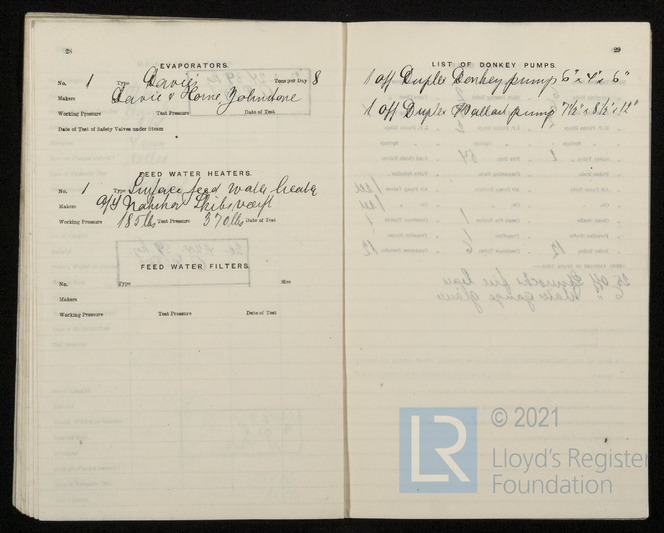 28
EVAPORATORS.
No. 1 Type Davie's Tons per Day 8
Makers Davie & Horne Johnstone
Working Pressure Test Pressure Date of Test
Date of Test of Safety Valves under Steam
FEED WATER HEATERS.
No. 1 Type Surface feed water heater
Makers
Working Pressure 185 lbs Test Pressure 370 lbs Date of Test
FEED WATER FILTERS.
No. Type Size
Makers
Working Pressure Test Pressure Date of Test
29
LIST OF DONKEY PUMPS.
1 off Duplex Donkey pump 6" x 4" x 6"
1 off Duplex Ballast pump 7½" x 8½" x 12"
© 2021
LR
Lloyd's Register
Foundation